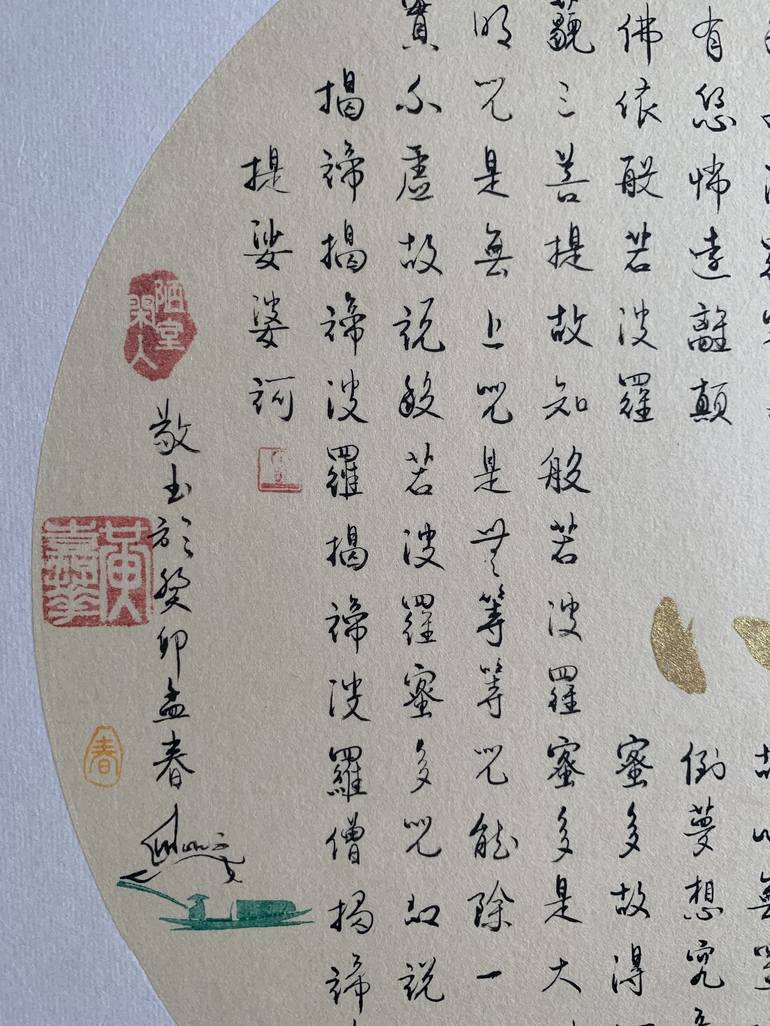 有恐怖遠離顛倒夢想究
佛依般若波羅蜜多故得
藐三菩提故知般若波羅蜜多是大
明咒是無上咒是無等等咒能除一
實不虛故說般若波羅蜜多咒即說
揭諦揭諦波羅揭諦波羅僧揭諦
提娑婆訶
陋室閑人
敬書於癸卯孟春
黃嘉華
春